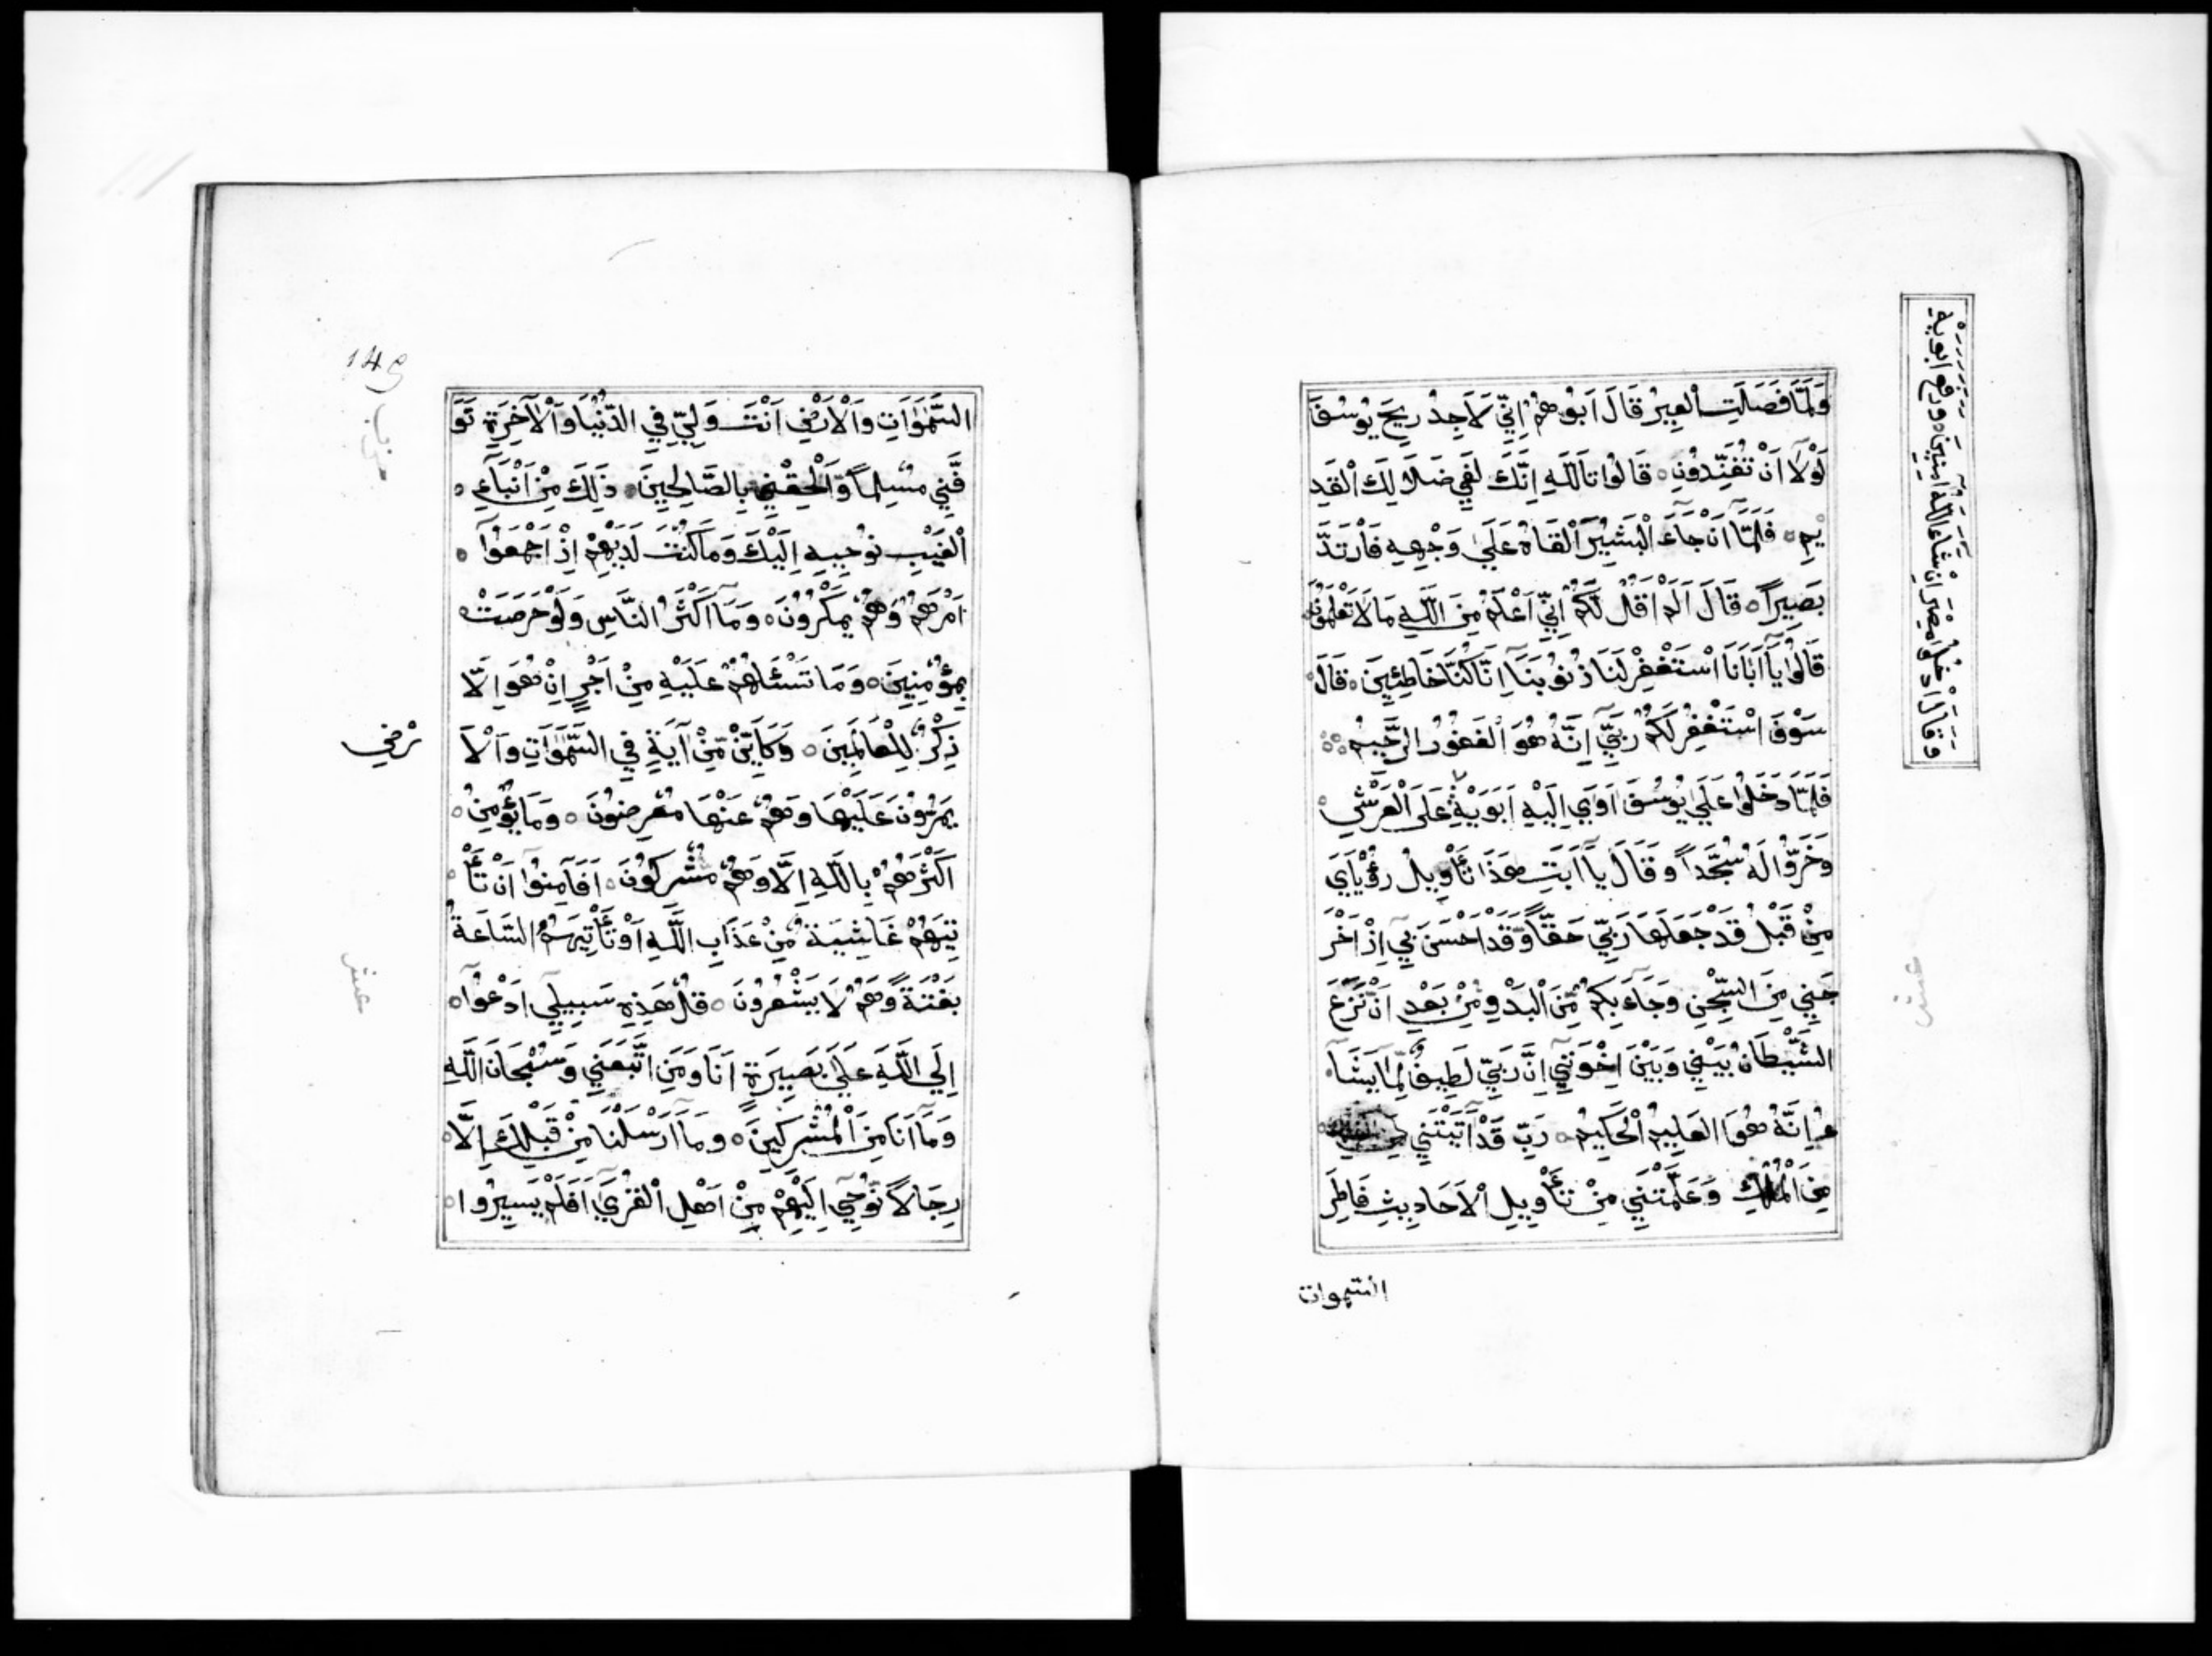 وَلَمَّا فَصَلَتِ الْعِيرُ قَالَ اَبُوهُمْ اِنِّي لَاَجِدُ رِيحَ يُوسُفَ
لَوْلَا اَنْ تُفَنِّدُونِ ۝ قَالُوا تَاللَّهِ اِنَّكَ لَفِي ضَلَالِكَ الْقَدِ
يمِ ۝ فَلَمَّا اَنْ جَاءَ الْبَشِيرُ اَلْقَاهُ عَلَى وَجْهِهِ فَارْتَدَّ
بَصِيرًا ۝ قَالَ اَلَمْ اَقُلْ لَكُمْ اِنِّي اَعْلَمُ مِنَ اللَّهِ مَا لَا تَعْلَمُونَ
قَالُوا يَا اَبَانَا اسْتَغْفِرْ لَنَا ذُنُوبَنَا اِنَّا كُنَّا خَاطِئِينَ ۝ قَالَ
سَوْفَ اسْتَغْفِرُ لَكُمْ رَبِّي اِنَّهُ هُوَ الْغَفُورُ الرَّحِيمُ
فَلَمَّا دَخَلُوا عَلَى يُوسُفَ اَوَى اِلَيْهِ اَبَوَيْهِ عَلَى الْعَرْشِ
وَخَرُّوا لَهُ سُجَّدًا وَقَالَ يَا اَبَتِ هَذَا تَأْوِيلُ رُؤْيَايَ
مِنْ قَبْلُ قَدْ جَعَلَهَا رَبِّي حَقًّا وَقَدْ اَحْسَنَ بِي اِذْ اَخْرَ
جَنِي مِنَ السِّجْنِ وَجَاءَ بِكُمْ مِنَ الْبَدْوِ مِنْ بَعْدِ اَنْ نَزَغَ
الشَّيْطَانُ بَيْنِي وَبَيْنَ اِخْوَتِي اِنَّ رَبِّي لَطِيفٌ لِمَا يَشَا
ءُ اِنَّهُ هُوَ الْعَلِيمُ الْحَكِيمُ ۝ رَبِّ قَدْ اَتَيْتَنِي
مِنَ الْمُلْكِ وَعَلَّمْتَنِي مِنْ تَأْوِيلِ الْاَحَادِيثِ فَاطِرَ
السموات
وَقَالَ ادْخُلُوا مِصْرَ اِنْ شَاءَ اللَّهُ اَمِنِينَ ۝ وَرَفَعَ اَبَوَيْهِ
عشر
السَّمٰوَاتِ وَالْاَرْضِ اَنْتَ وَلِيِّ فِي الدُّنْيَا وَالْاَخِرَةِ تَوَ
فَّنِي مُسْلِمًا وَاَلْحِقْنِي بِالصَّالِحِينَ ۝ ذَلِكَ مِنْ اَنْبَاءِ
الْغَيْبِ نُوحِيهِ اِلَيْكَ وَمَا كُنْتَ لَدَيْهِمْ اِذْ اَجْمَعُوا
اَمْرَهُمْ وَهُمْ يَمْكُرُونَ ۝ وَمَا اَكْثَرُ النَّاسِ وَلَوْ حَرَصَتْ
بِمُؤْمِنِينَ ۝ وَمَا تَسْئَلُهُمْ عَلَيْهِ مِنْ اَجْرٍ اِنْ هُوَ اِلَّا
ذِكْرٌ لِلْعَالَمِينَ ۝ وَكَاَيِّنْ مِنْ آيَةٍ فِي السَّمٰوَاتِ وَالْاَ
يَمُرُّونَ عَلَيْهَا وَهُمْ عَنْهَا مُعْرِضُونَ ۝ وَمَا يُؤْمِنُ
اَكْثَرُهُمْ بِاللَّهِ اِلَّا وَهُمْ مُشْرِكُونَ ۝ اَفَاَمِنُوا اَنْ تَأْ
تِيَهُمْ غَاشِيَةٌ مِنْ عَذَابِ اللَّهِ اَوْ تَأْتِيَهُمُ السَّاعَةُ
بَغْتَةً وَهُمْ لَا يَشْعُرُونَ ۝ قُلْ هَذِهِ سَبِيلِي اَدْعُوا
اِلَى اللَّهِ عَلَى بَصِيرَةٍ اَنَا وَمَنِ اتَّبَعَنِي وَسُبْحَانَ اللَّهِ
وَمَا اَنَا مِنَ الْمُشْرِكِينَ ۝ وَمَا اَرْسَلْنَا مِنْ قَبْلِكَ اِلَّا
رِجَالًا نُوحِي اِلَيْهِمْ مِنْ اَهْلِ الْقُرَى اَفَلَمْ يَسِيرُوا
رْضِ
عشر